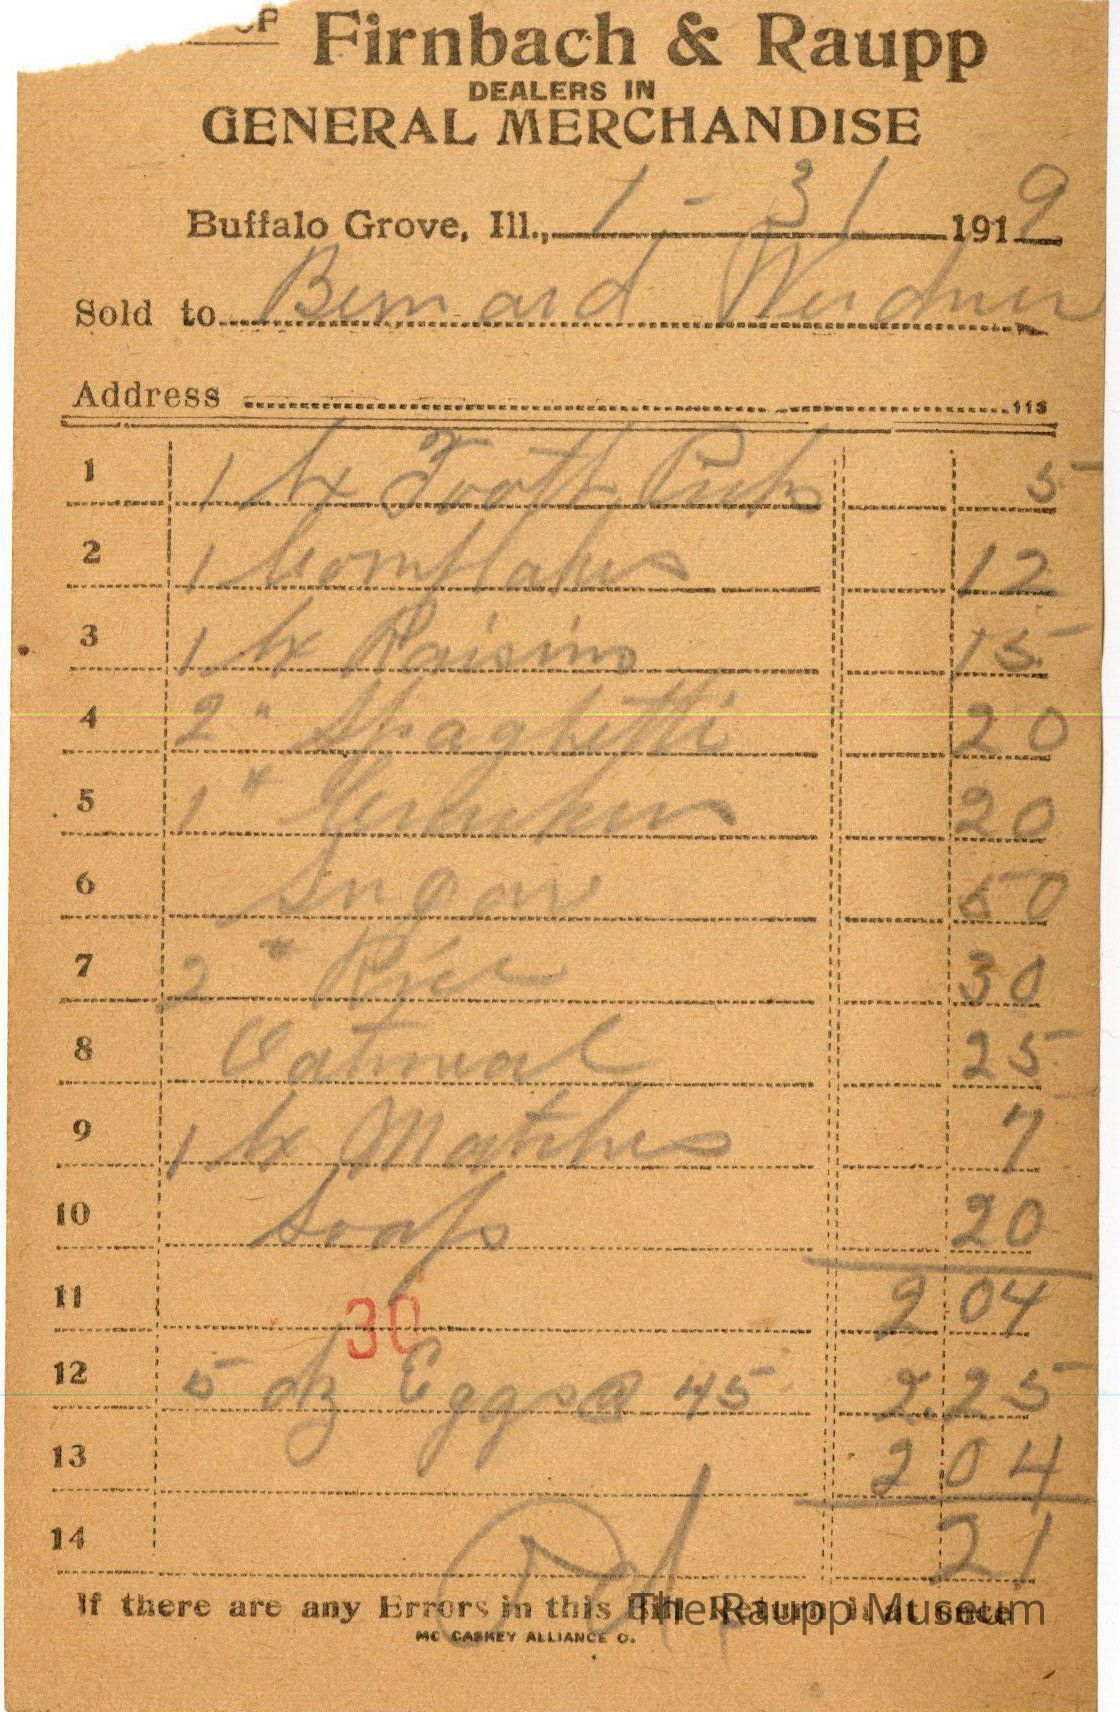 Firnbach & Raupp
DEALERS IN
GENERAL MERCHANDISE
Buffalo Grove, Ill., 1-31 1919
Sold to Bernard Weidner
Address 113
1 1 bx Tooth Picks 5
2 1 Cornflakes 12
3 1 bx Raisins 15
4 2 " Spaghetti 20
5 1 " 20
6 Sugar 50
7 2 " Rice 30
8 Oatmeal 25
9 1 bx Matches 7
10 Soap 20
11 2 04
30
12 5 dz Eggs @ 45 2.25
13 2 04
14 21
Pd.
If there are any Errors in this Bill Return it at once
The Raupp Museum
MC CASKEY ALLIANCE O.